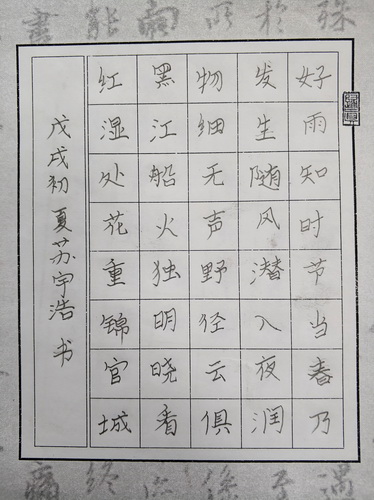 好雨知时节当春乃
发生随风潜入夜润
物细无声野径云俱
黑江船火独明晓看
红湿处花重锦官城
戊戌初夏苏宇浩书